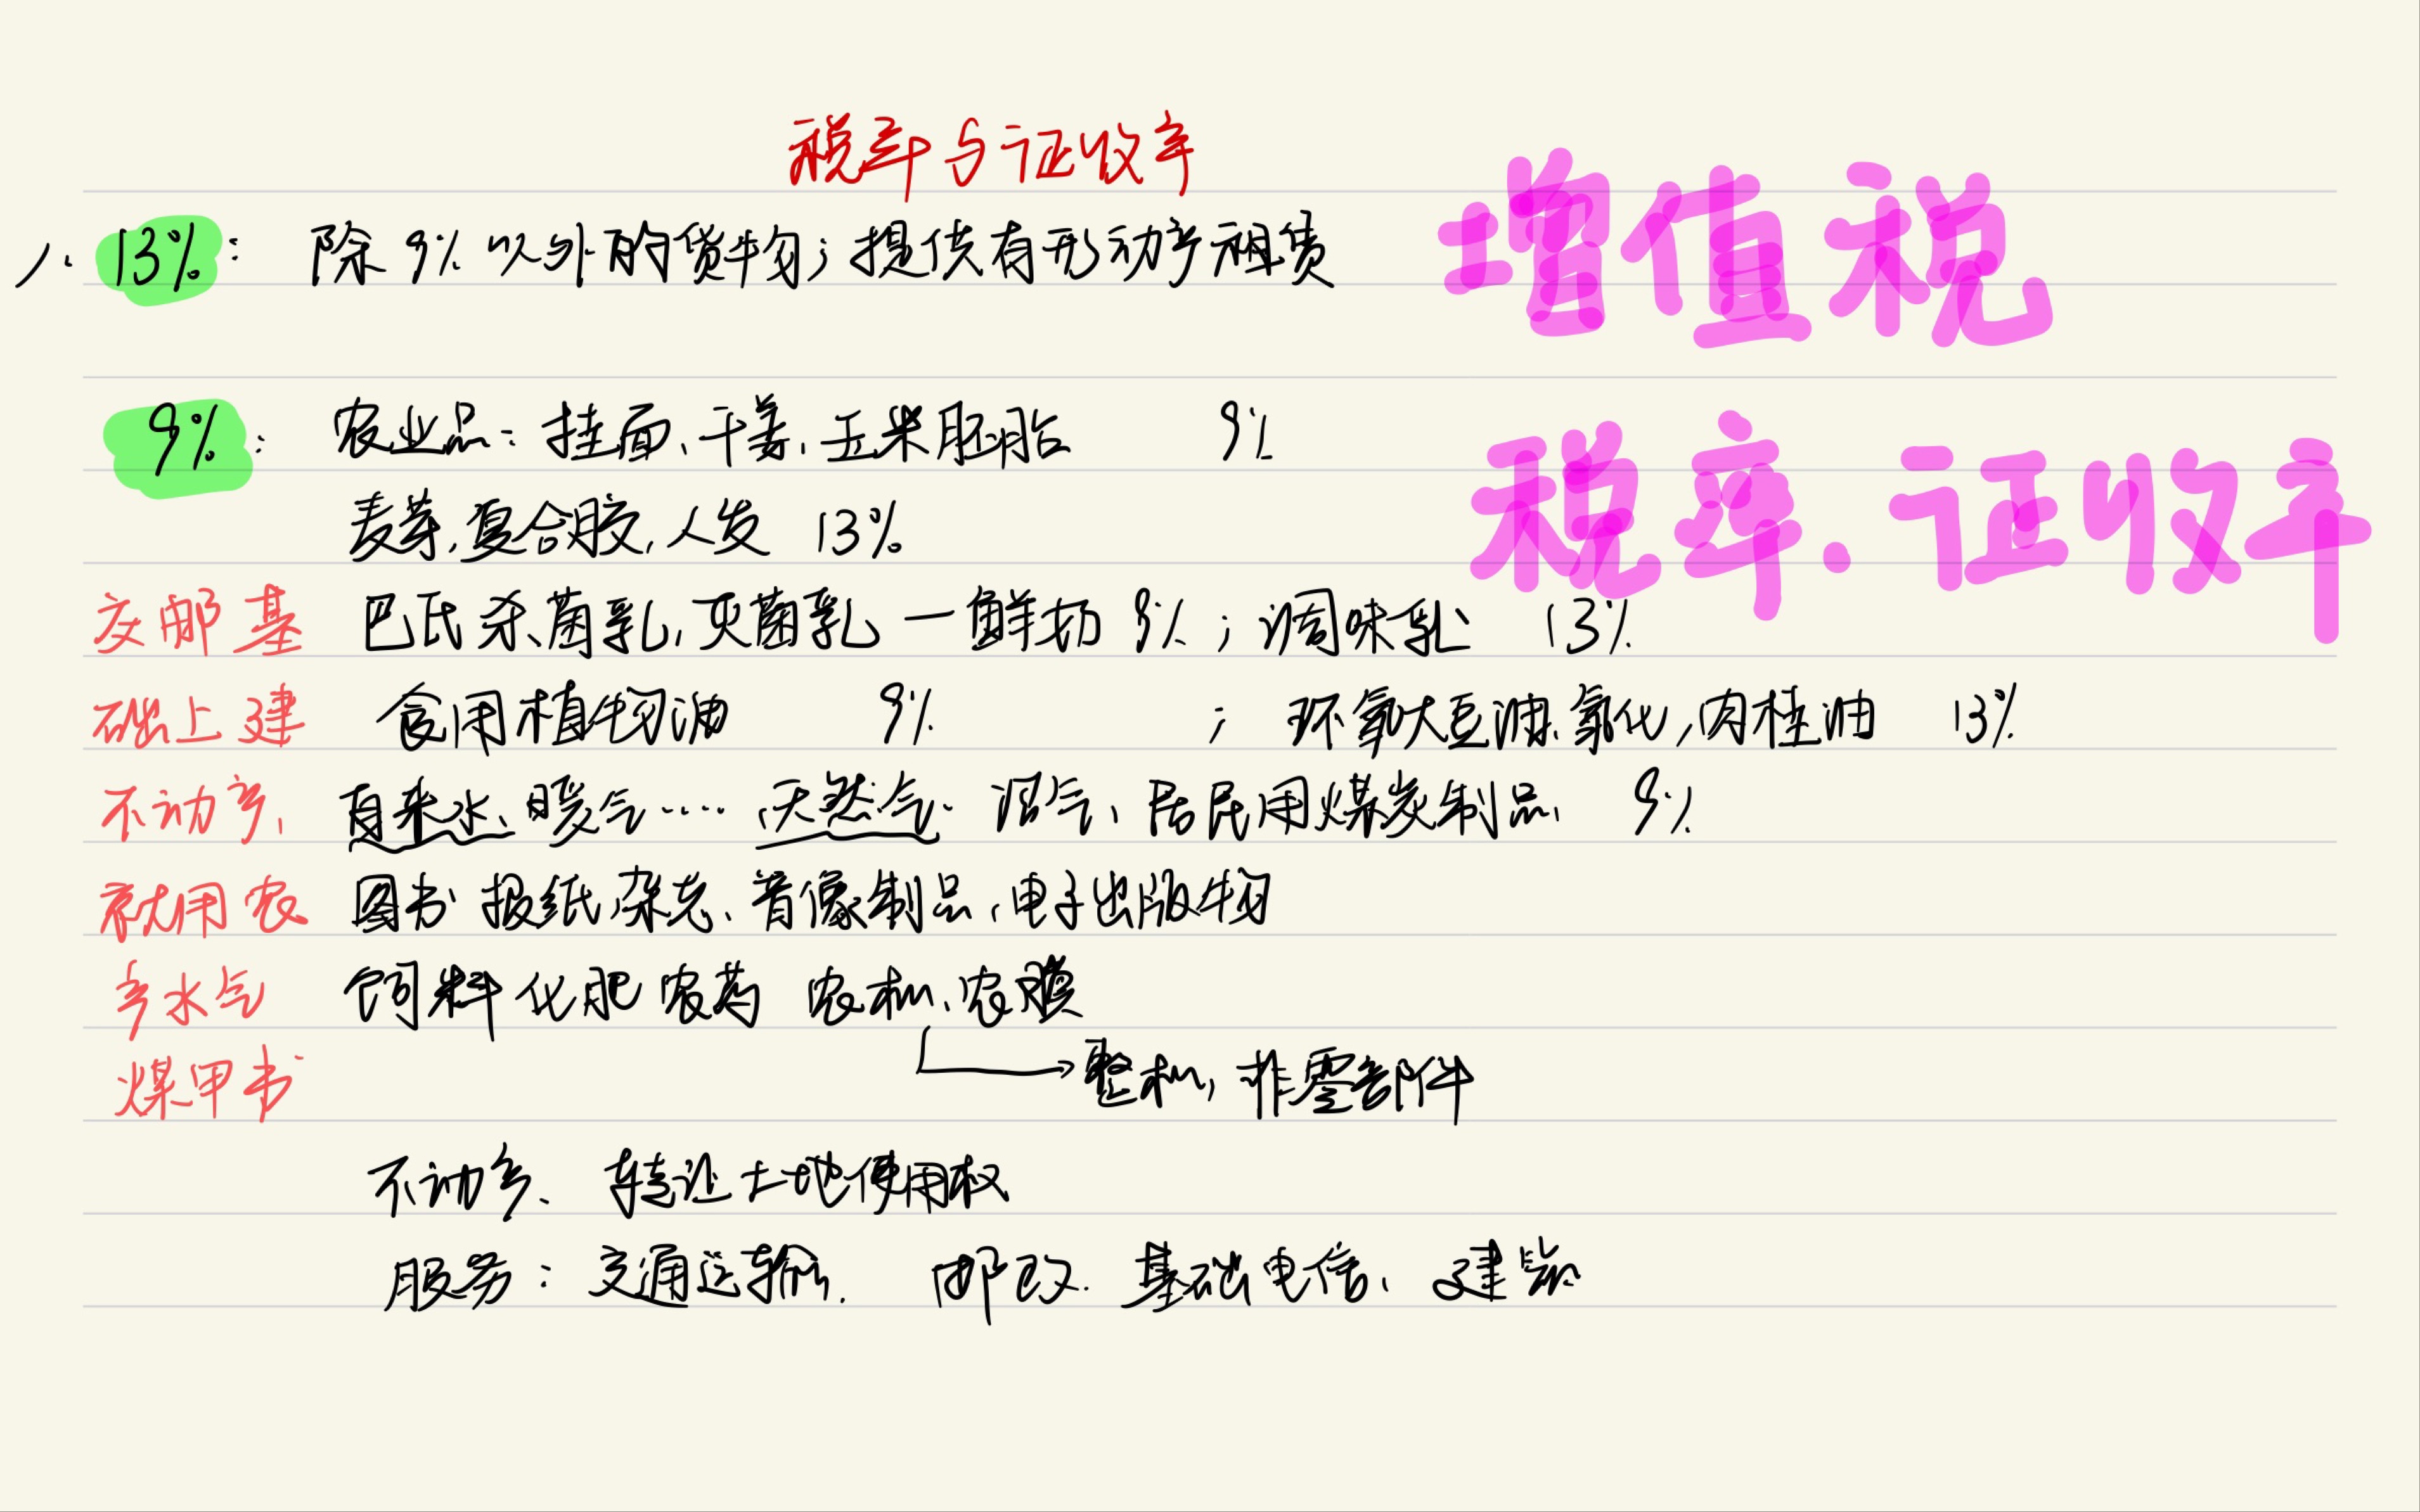 税率与证收率
增值税
1. 13%: 除 9% 以外的货物; 提供有形动产租赁
税率.证收率
9%: 农业品: 挂面、干姜、玉米胚油 9%
麦芽,复合胶、人发 13%
交邮基 巴氏杀菌乳、灭菌乳 — 鲜奶 9%; 调味乳 13%
础上建 食用植物油 9% ; 环氧大豆油、氢化,肉桂油 13%
不动产、 自来水、暖气.... 天然气、沼气、居民用煤炭制品、 9%
农 图书 报纸、杂志、音像制品、电子出版物
产水气 饲料 化肥 农药 农机、农膜
煤甲书 整机,非零部件
不动产、 转让土地使用权
服务: 交通运输. 邮政. 基础电信、建筑